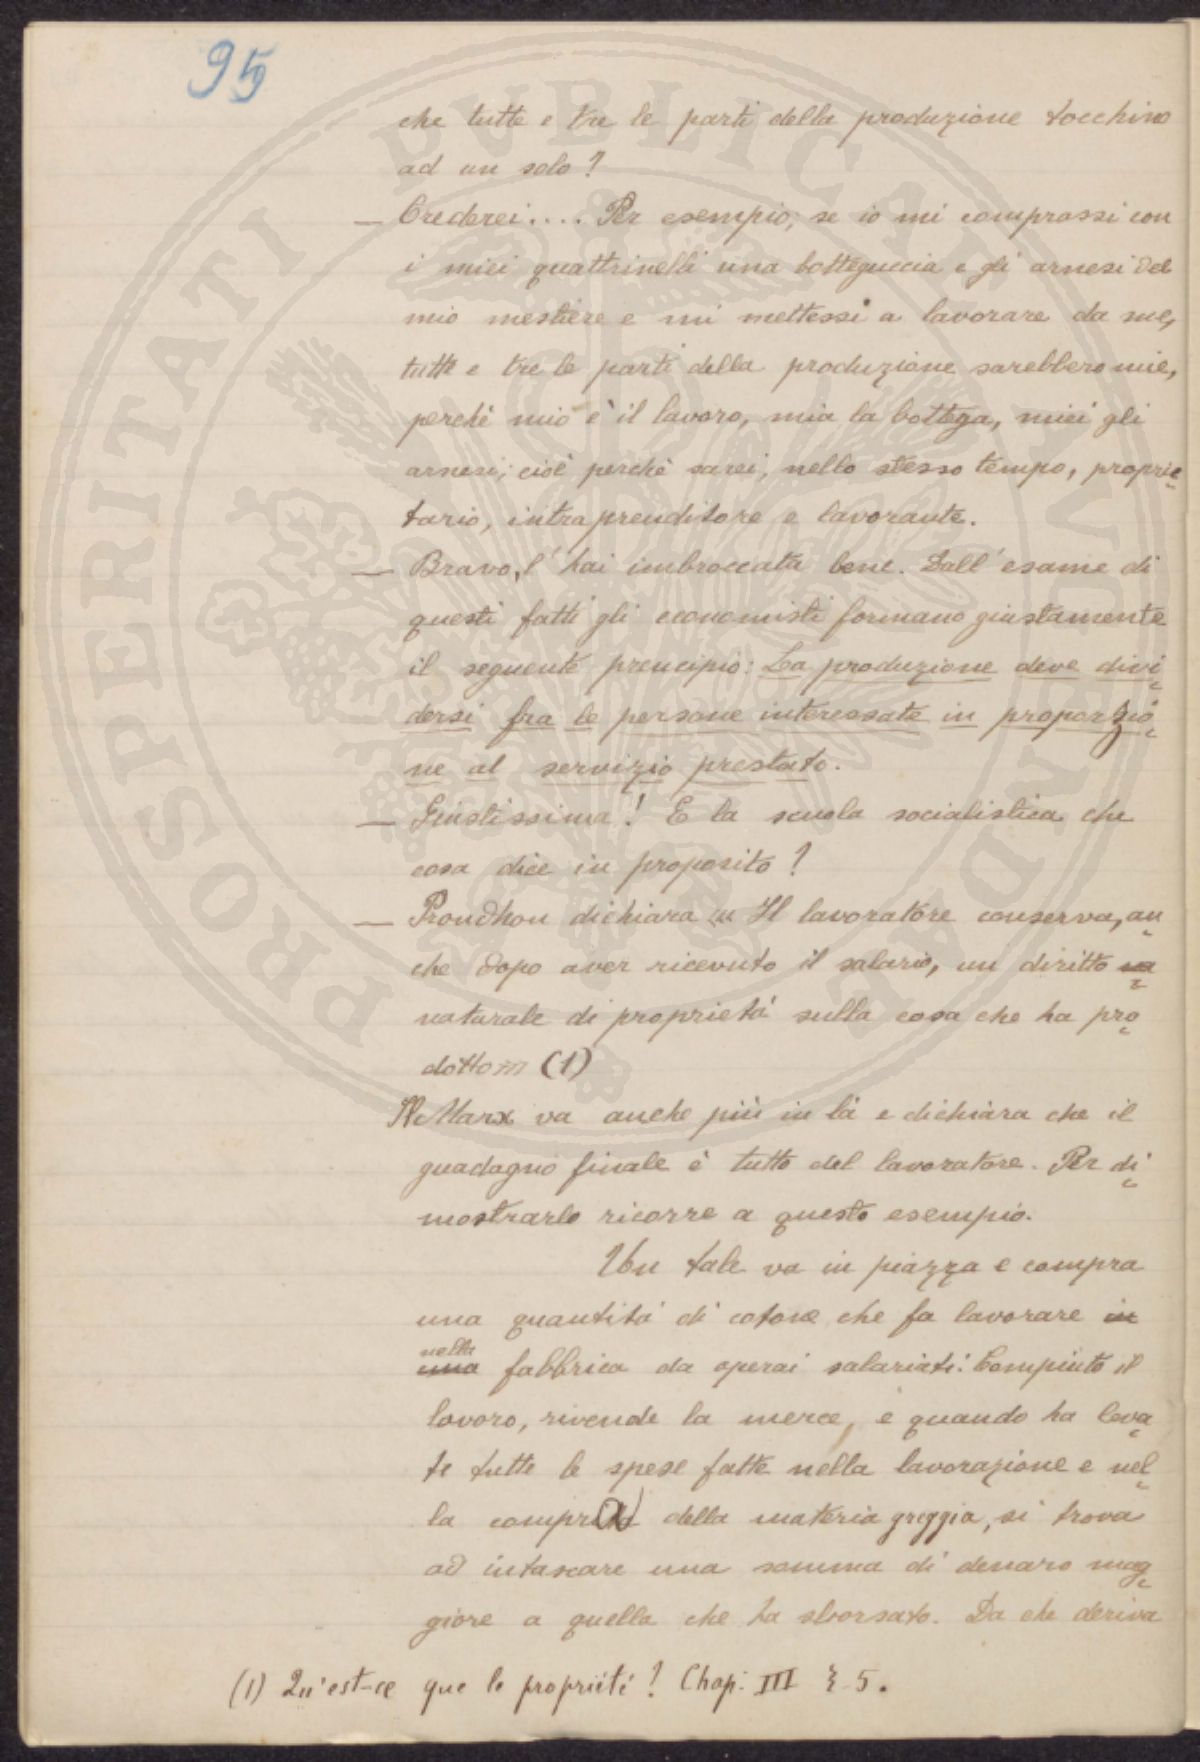 95
che tutte e tre le parti della produzione tocchino
ad un solo?
— Crederei.... Per esempio, se io mi comprassi con
i miei quattrinelli una botteguccia e gli arnesi del
mio mestiere e mi mettessi a lavorare da me,
tutte e tre le parti della produzione sarebbero mie,
perchè mio è il lavoro, mia la bottega, miei gli
arnesi; cioè perchè sarei, nello stesso tempo, proprie
tario, intraprenditore e lavorante.
— Bravo, l'hai imbroccata bene. Dall'esame di
questi fatti gli economisti formano giustamente
il seguente prencipio: La produzione deve divi
dersi fra le persone interessate in proporzio
ne al servizio prestato.
— Giustissima! E la scuola socialistica che
cosa dice in proposito?
— Proudhon dichiara "Il lavoratore conserva, an
che dopo aver ricevuto il salario, un diritto na
naturale di proprietà sulla cosa che ha pro
dotto" (1)
Marx va anche più in là e dichiara che il
guadagno finale è tutto del lavoratore. Per di
mostrarlo ricorre a questo esempio.
Un tale va in piazza e compra
una quantità di cotone che fa lavorare in
nella
una fabbrica da operai salariati. Compiuto il
lavoro, rivende la merce, e quando ha leva
te tutte le spese fatte nella lavorazione e nel
la compra della materia greggia, si trova
ad intascare una somma di denaro mag
giore a quella che ha sborsato. Da che deriva
(1) Qu'est-ce que le propriété? Chap: III § 5.
PROSPERITATI PVBLICAE AVGENDAE